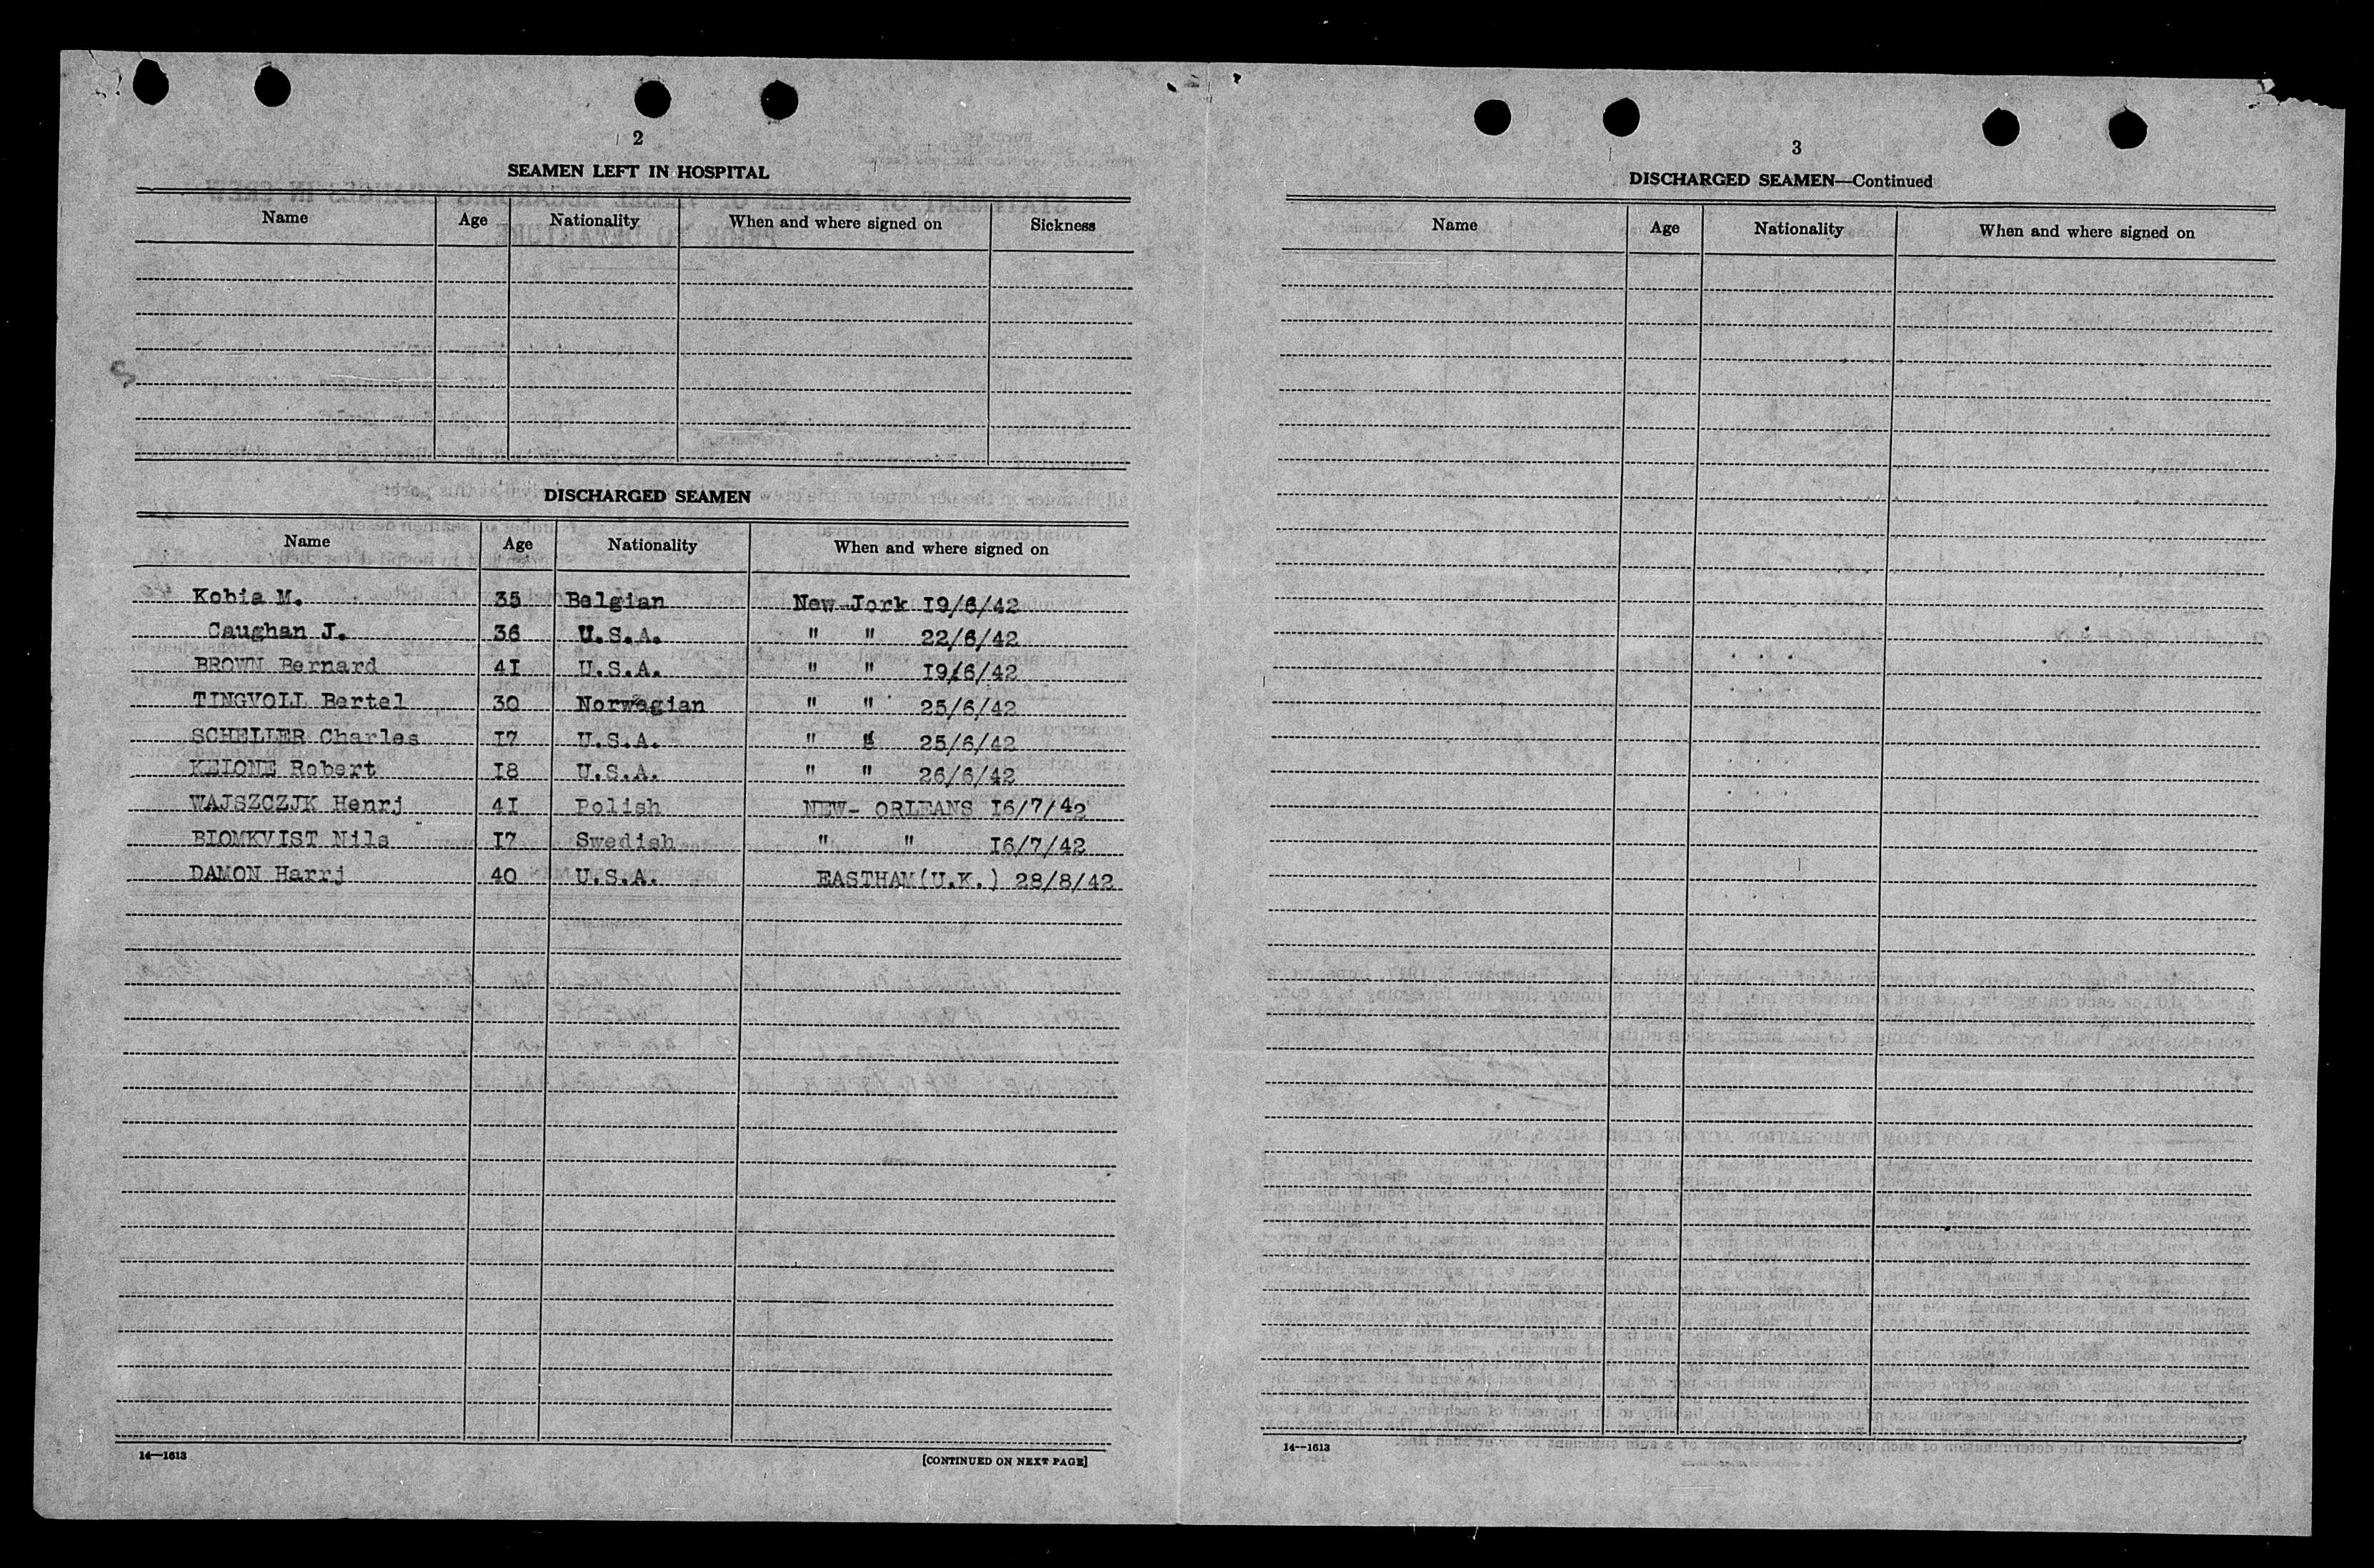 2
SEAMEN LEFT IN HOSPITAL
Name Age Nationality When and where signed on Sickness
DISCHARGED SEAMEN
Name Age Nationality When and where signed on
Kobia M. 35 Belgian New-Jork I9/6/42
Caughan J. 36 U.S.A. " " 22/6/42
BROWN Bernard 4I U.S.A. " " I9/6/42
TINGVOLL Bertel 30 Norwegian " " 25/6/42
SCHELLER Charles I7 U.S.A. " " 25/6/42
KEIONE Robert I8 U.S.A. " " 26/6/42
WAJSZCZJK Henrj 4I Polish NEW- ORLEANS I6/7/42
BIOMKVIST Nils I7 Swedish " " I6/7/42
DAMON Harrj 40 U.S.A. EASTHAM(U.K.) 28/8/42
14—1613 [CONTINUED ON NEXT PAGE]
3
DISCHARGED SEAMEN—Continued
Name Age Nationality When and where signed on
14—1613